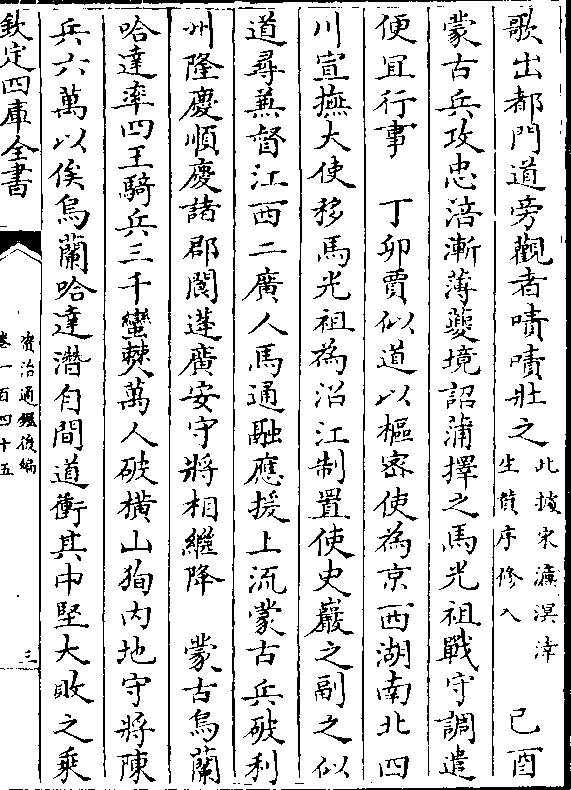 歌出都門道旁觀者嘖嘖壯之此據宋濂溟涬
生贊序修入 己酉
蒙古兵攻忠涪漸薄夔境詔蒲擇之馬光祖戰守調遣
便宜行事 丁卯賈似道以樞密使為京西湖南北四
川宣撫大使移馬光祖為沿江制置使史巖之副之似
道尋兼督江西二廣人馬通融應援上流蒙古兵破利
州隆慶順慶諸郡閬蓬廣安守將相繼降 蒙古烏蘭
哈達率四王騎兵三千蠻僰萬人破橫山狥内地守將陳
兵六萬以俟烏蘭哈達潛自間道衝其中堅大敗之乘
欽定四庫全書
資治通鑑後編
卷一百四十五
三